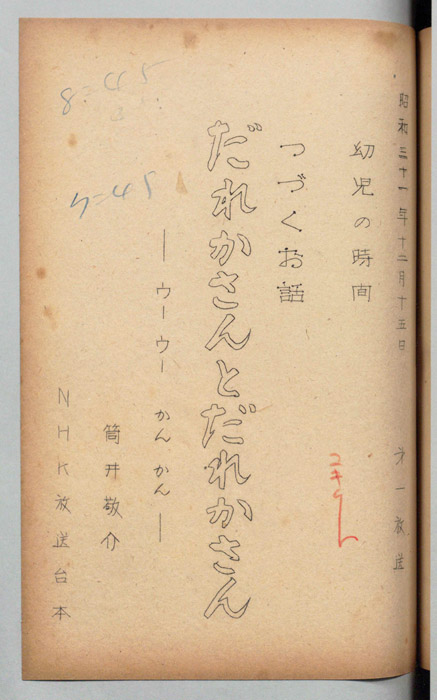 昭和三十一年十二月十五日 第一放送
幼児の時間
つづくお話
だれかさんとだれかさん
── ウーウー かんかん ──
筒井敬介
NHK放送台本
8=45
7=45